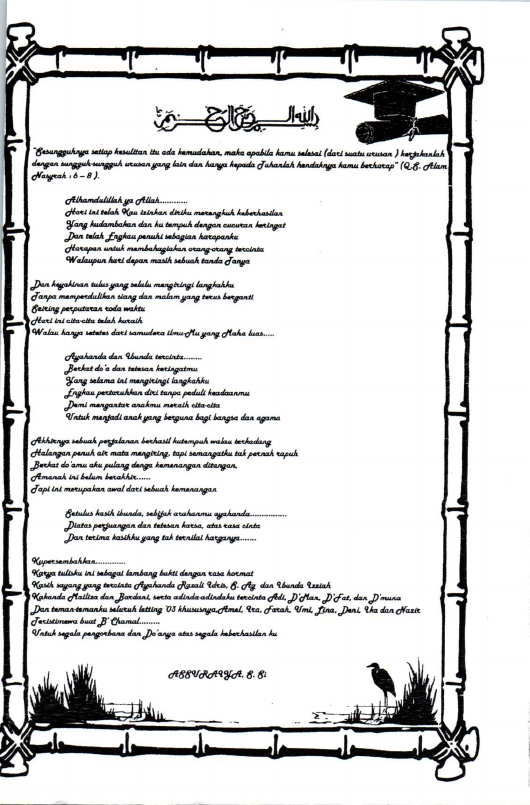 بسم الله الرحمن الرحيم
"Sesungguhnya setiap kesulitan itu ada kemudahan, maka apabila kamu selesai (dari suatu urusan ) kerjakanlah
dengan sungguh-sungguh urusan yang lain dan hanya kepada Tuhanlah hendaknya kamu berharap" (Q.S. Alam
Nasyrah : 6 – 8 ).
Alhamdulillah ya Allah............
Hari ini telah Kau izinkan diriku merengkuh keberhasilan
Yang kudambakan dan ku tempuh dengan cucuran keringat
Dan telah Engkau penuhi sebagian harapanku
Harapan untuk membahagiakan orang-orang tercinta
Walaupun hari depan masih sebuah tanda Tanya
Dan keyakinan tulus yang selalu mengiringi langkahku
Tanpa memperdulikan siang dan malam yang terus berganti
Seiring perputaran roda waktu
Hari ini cita-cita telah kuraih
Walau hanya setetes dari samudera ilmu-Mu yang Maha luas.....
Ayahanda dan Ibunda tercinta........
Berkat do'a dan tetesan keringatmu
Yang selama ini mengiringi langkahku
Engkau pertaruhkan diri tanpa peduli keadaanmu
Demi mengantar anakmu meraih cita-cita
Untuk menjadi anak yang berguna bagi bangsa dan agama
Akhirnya sebuah perjalanan berhasil kutempuh walau terkadang
Halangan penuh air mata mengiring, tapi semangatku tak pernah rapuh
Berkat do'amu aku pulang denga kemenangan ditangan,
Amanah ini belum berakhir......
Tapi ini merupakan awal dari sebuah kemenangan
Setulus kasih ibunda, sebijak arahanmu ayahanda................
Diatas perjuangan dan tetesan karsa, atas rasa cinta
Dan terima kasihku yang tak ternilai harganya.......
Kupersembahkan.............
Karya tulisku ini sebagai lambang bukti dengan rasa hormat
Kasih sayang yang tercinta Ayahanda Razali Idris, S. Ag dan Ibunda Izziah
Kakanda Mailiza dan Bardani, serta adinda-adindaku tercinta Adi, D'Man, D'Fat, dan D'muna
Dan teman-temanku seluruh letting '03 khususnya.Amel, Ira, Farah, Umi, Lina, Deni, Ika dan Nazir
Teristimewa buat B' Chamal.........
Untuk segala pengorbana dan Do'anya atas segala keberhasilan ku
ASSURAIYA, S. Si